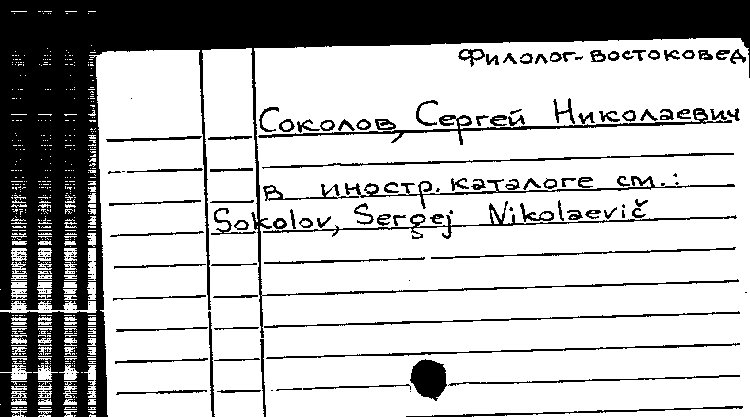 Филолог-востоковед
Соколов, Сергей Николаевич
в иностр. каталоге см.:
Sokolov, Sergej Nikolaevič